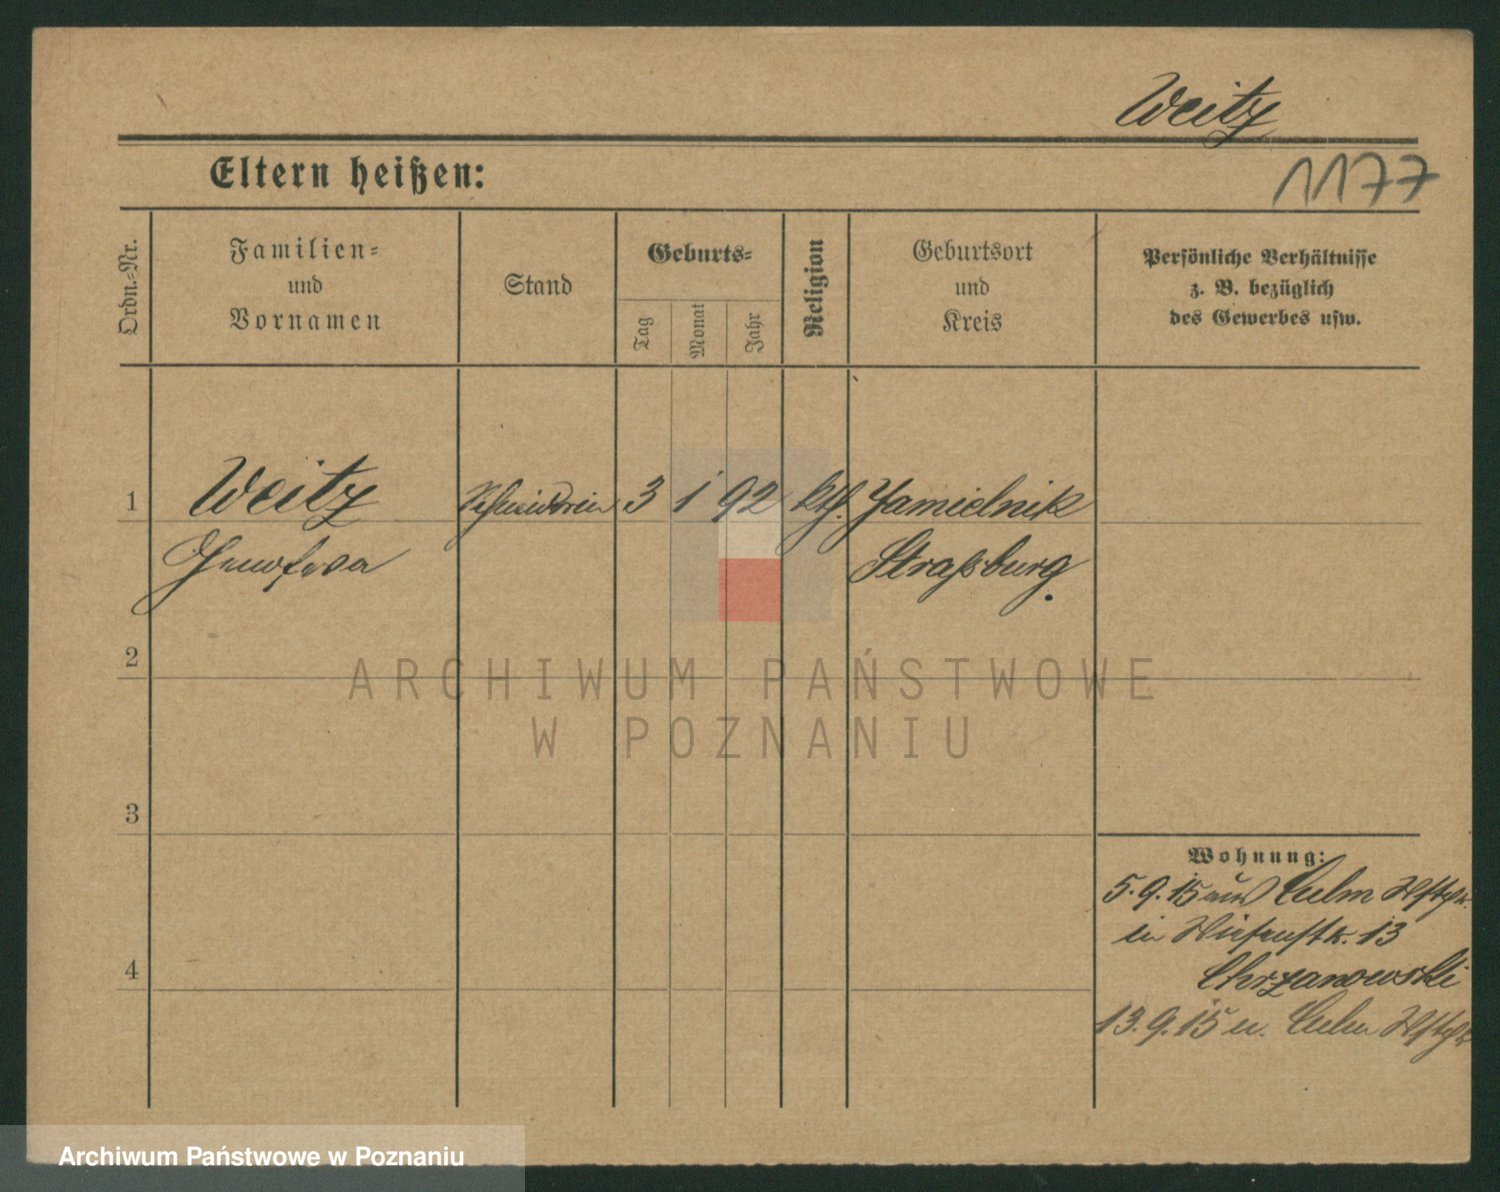 Weitz
Eltern heißen:
1177
Ordn.-Nr.
Familien-
und
Vornamen
Stand
Geburts-
Tag
Monat
Jahr
Religion
Geburtsort
und
Kreis
Persönliche Verhältnisse
z. B. bezüglich
des Gewerbes usw.
1 Weitz Schneiderin 3 1 92 kth. Jamielnik
Genofeva Straßburg.
2
3
4
Wohnung:
5.9.15 aus Culm Wstpr.
in Wiesenstr. 13
Chrzanowski
13.9.15 n. Culm Wstpr.
ARCHIWUM PAŃSTWOWE
W POZNANIU
Archiwum Państwowe w Poznaniu